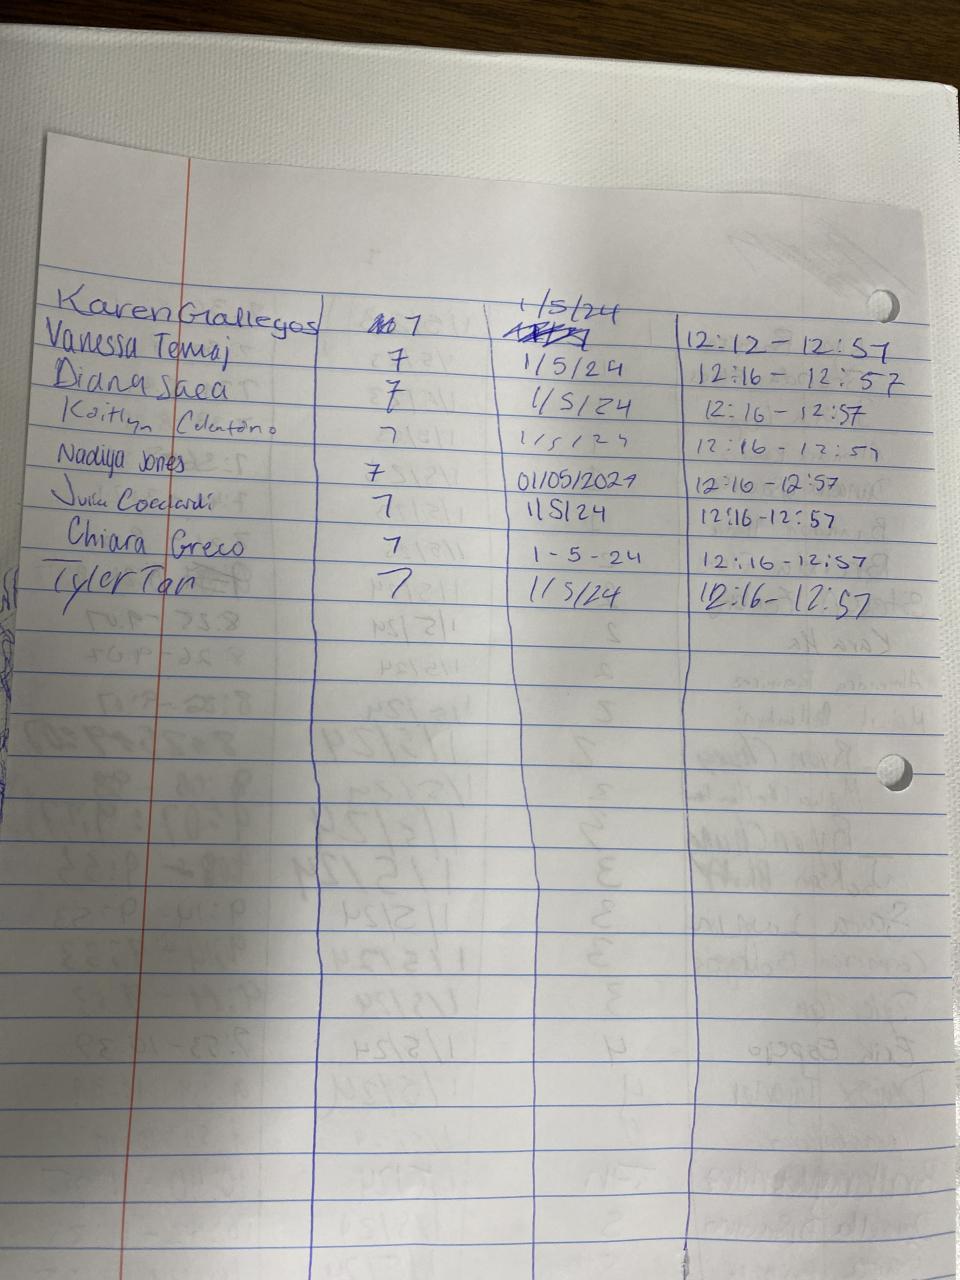 Karen Gallegos 7 1/5/24 12:12 - 12:57
Vanessa Temaj 7 1/5/24 12:16 - 12:57
Diana Saea 7 1/5/24 12:16 - 12:57
Kaitlyn Celentano 7 1/5/24 12:16 - 12:57
Nadiya Jones 7 01/05/2021 12:16 - 12:57
Cocciardi 7 1/5/24 12:16-12:57
Chiara Greco 7 1-5-24 12:16-12:57
Tyler Tan 7 1/5/24 12:16-12:57